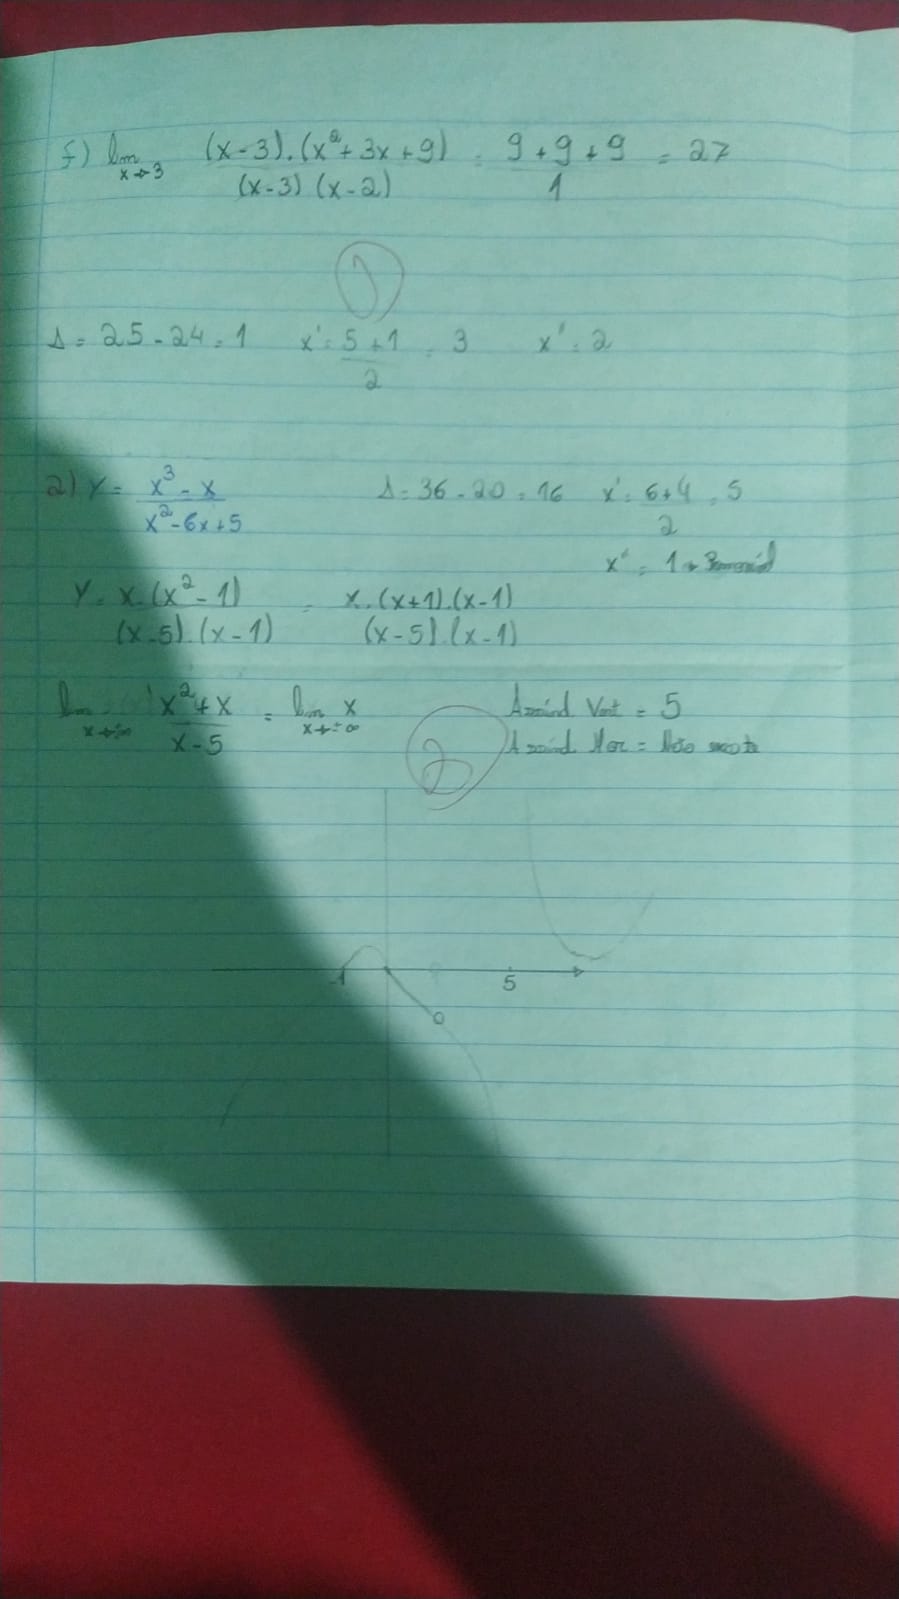 f) lim x→3 (x-3).(x²+3x+9) / (x-3)(x-2) = 9+9+9 / 1 = 27
1
Δ = 25 - 24 = 1 x' = 5+1 / 2 = 3 x' = 2
2) Y = x³ - x / x² - 6x + 5 Δ = 36 - 20 = 16 x' = 6+4 / 2 = 5
x'' = 1 →
Y = x.(x² - 1) / (x-5).(x-1) = x.(x+1).(x-1) / (x-5).(x-1)
lim x² + x / x - 5 = lim x Assínt Vert = 5
2 Assínt Hor = Não existe
-1 5